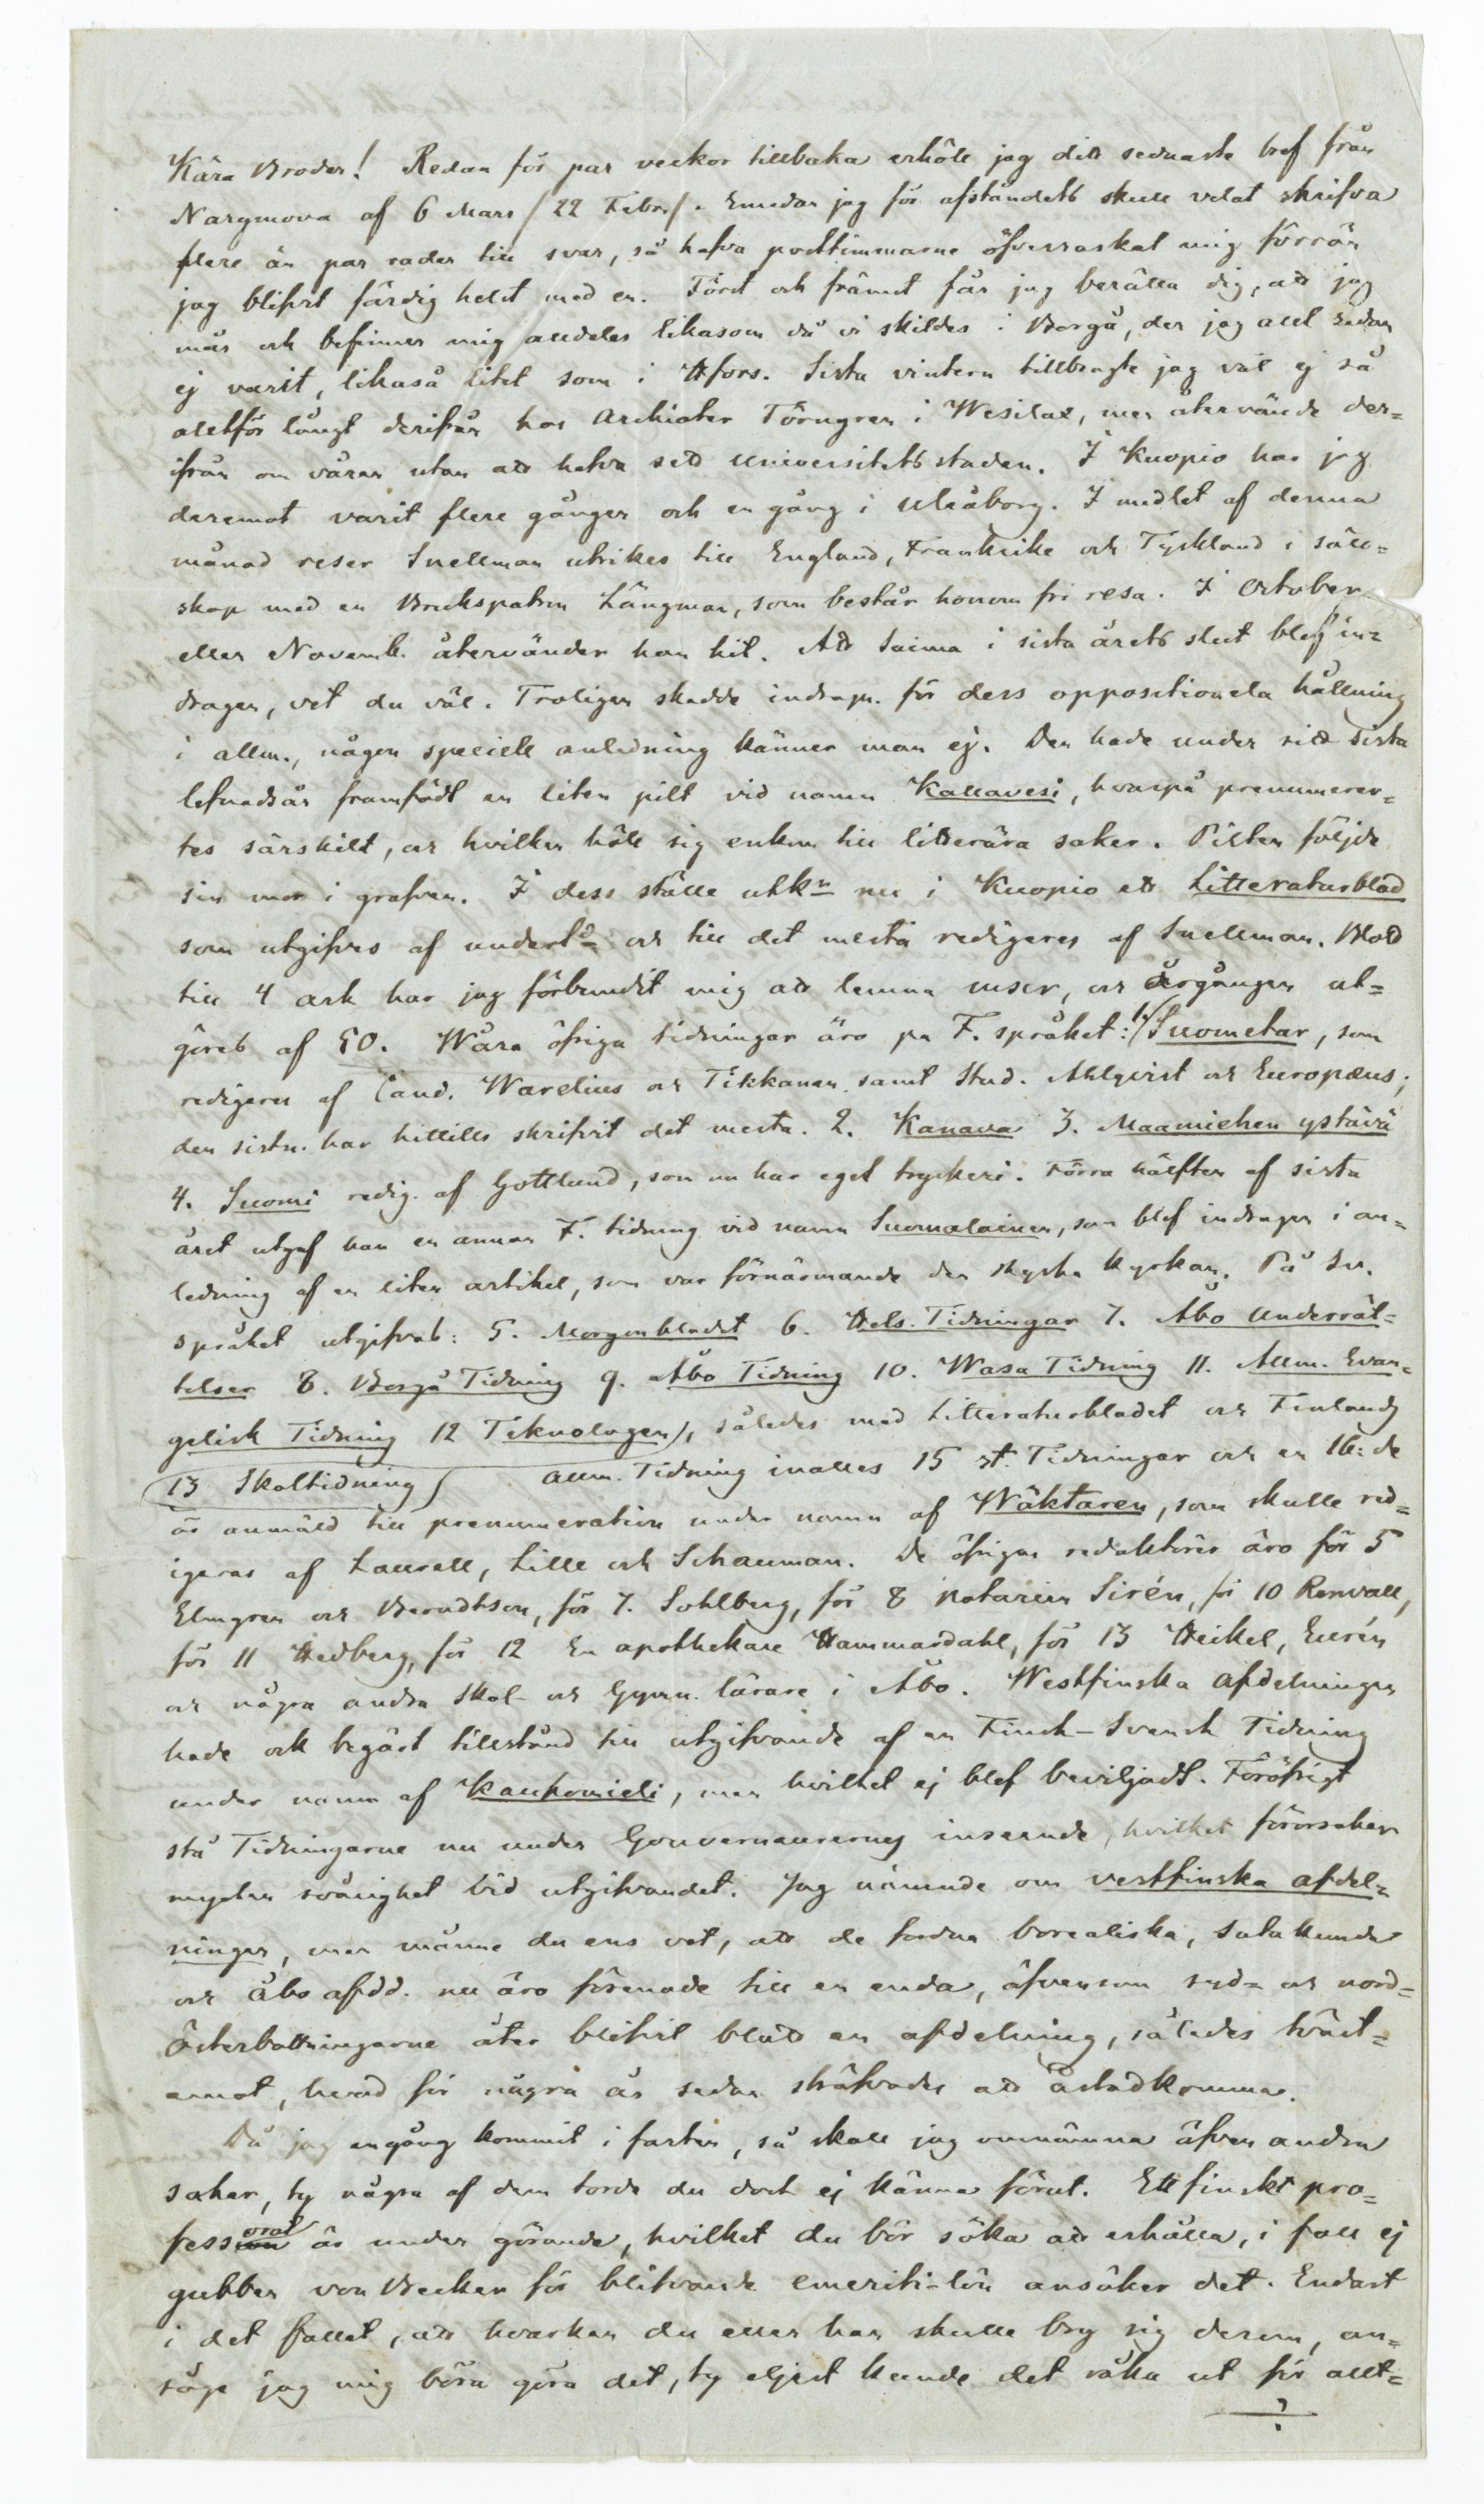 Kära Broder! Redan för par veckor tillbaka erhöll jag ditt sednaste bref från
Narymova af 6 Mars /22 Febr./. Emedan jag för afståndets skull velat skrifva
flere än par rader till svar, så hafva posttimmarne öfverraskat mig förrän
jag blifvit färdig helst med en. Först och främst får jag berätta dig, att jag
mår och befinner mig alldeles likasom då vi skildes i Borgå, der jag allt sedan
ej varit, likaså litet som i Hfors. Sista vintern tillbragte jag väl ej så
alltför långt derifrån hos Archiater Törngren i Wesilax, men återvände der=
ifrån om våren utan att hafva sett universitetsstaden. I Kuopio har jag
deremot varit flere gånger och en gång i Uleåborg. I medlet af denna
månad reser Snellman utrikes till England, Frankrike och Tyskland i säll=
skap med en Brukspatron Långman, som består honom fri resa. I October
eller Novemb. återvänder han hit. Att Saima i sista årets slut blef in=
dragen, vet du väl. Troligen skedde indragn. för dess oppositionela hållning
i allm., någon speciell anledning känner man ej. Den hade under sitt sista
lefnadsår framfödt en liten pilt vid namn Kallavesi, hvarpå prenumerer=
tes särskilt, och hvilken höll sig enkom till litterära saker. Pilten följde
sin mor i grafven. I dess ställe utkr nu i Kuopio ett Litteraturblad
som utgifves af undert.d och till det mesta redigeras af Snellman. Blott
till 4 ark har jag förbundit mig att lemna mser, och årgången ut=
göres af 50. Wåra öfriga tidningar äro på F. språket: 1/ Suometar, som
redigeras af Cand. Warelius och Tikkanen samt Stud. Ahlqvist och Europæus;
den sistn. har hittills skrifvit det mesta. 2. Kanava 3. Maamiehen ystävä
4. Suomi redig. af Gottlund, som nu har eget tryckeri. Förra hälften af sista
året utgaf han en annan F. tidning vid namn Suomalainen, som blef indragen i an=
ledning af en liten artikel, som var förnärmande den ryska kyrkan. På Sv.
språket utgifvas: 5. Morgonbladet 6. Hels. Tidningar 7. Åbo Underrät=
telser 8. Borgå Tidning 9. Åbo Tidning 10. Wasa Tidning 11. Allm. Evan=
gelisk Tidning 12 Teknologen, således med Litteraturbladet och Finlands
13 Skoltidning allm. Tidning inalles 15 st. Tidningar och en 16:de
är anmäld till prenumeration under namn af Wäktaren, som skulle red=
igeras af Laurell, Lille och Schauman. De öfriga redaktörer äro för 5
Elmgren och Berndtson, för 7. Sohlberg, för 8 Notarien Sirén, för 10 Renvall,
för 11 Hedberg, för 12 En apothekare Hammardahl, för 13 Heikel, Eurén
och några andra Skol- och Gymn. lärare i Åbo. Westfinska afdelningen
hade ock begärt tillstånd till utgifvande af en Finsk-Svensk Tidning
under namn af Kaukomieli, men hvilket ej blef beviljadt. Föröfrigt
stå Tidningarne nu under Gouverneurernes inseende, hvilket förorsakar
mycken svårighet vid utgifvandet. Jag nämnde om vestfinska afdel=
ningen, men månne du ens vet, att de fordna borealiska, Satakunda
och Åbo afdd. nu äro förenade till en enda, äfvensom syd= och nord=
österbottningarne åter blifvit blott en afdelning, således tvärt=
emot, hvad för några år sedan sträfvades att åstadkomma.
Då jag engång kommit i farten, så skall jag omnämna äfven andra
saker, ty några af dem torde du dock ej känna förut. Ett finskt pro=
fessorat är under görande, hvilket du bör söka att erhålla, i fall ej
gubben von Becker för blifvande emeriti-lön ansöker det. Endast
i det fallet, att hvarken du eller han skulle bry sig derom, an=
såge jag mig böra göra det, ty eljest kunde det råka ut för allt=